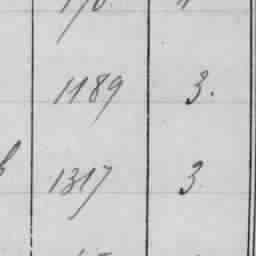 1189 3.
1317 3